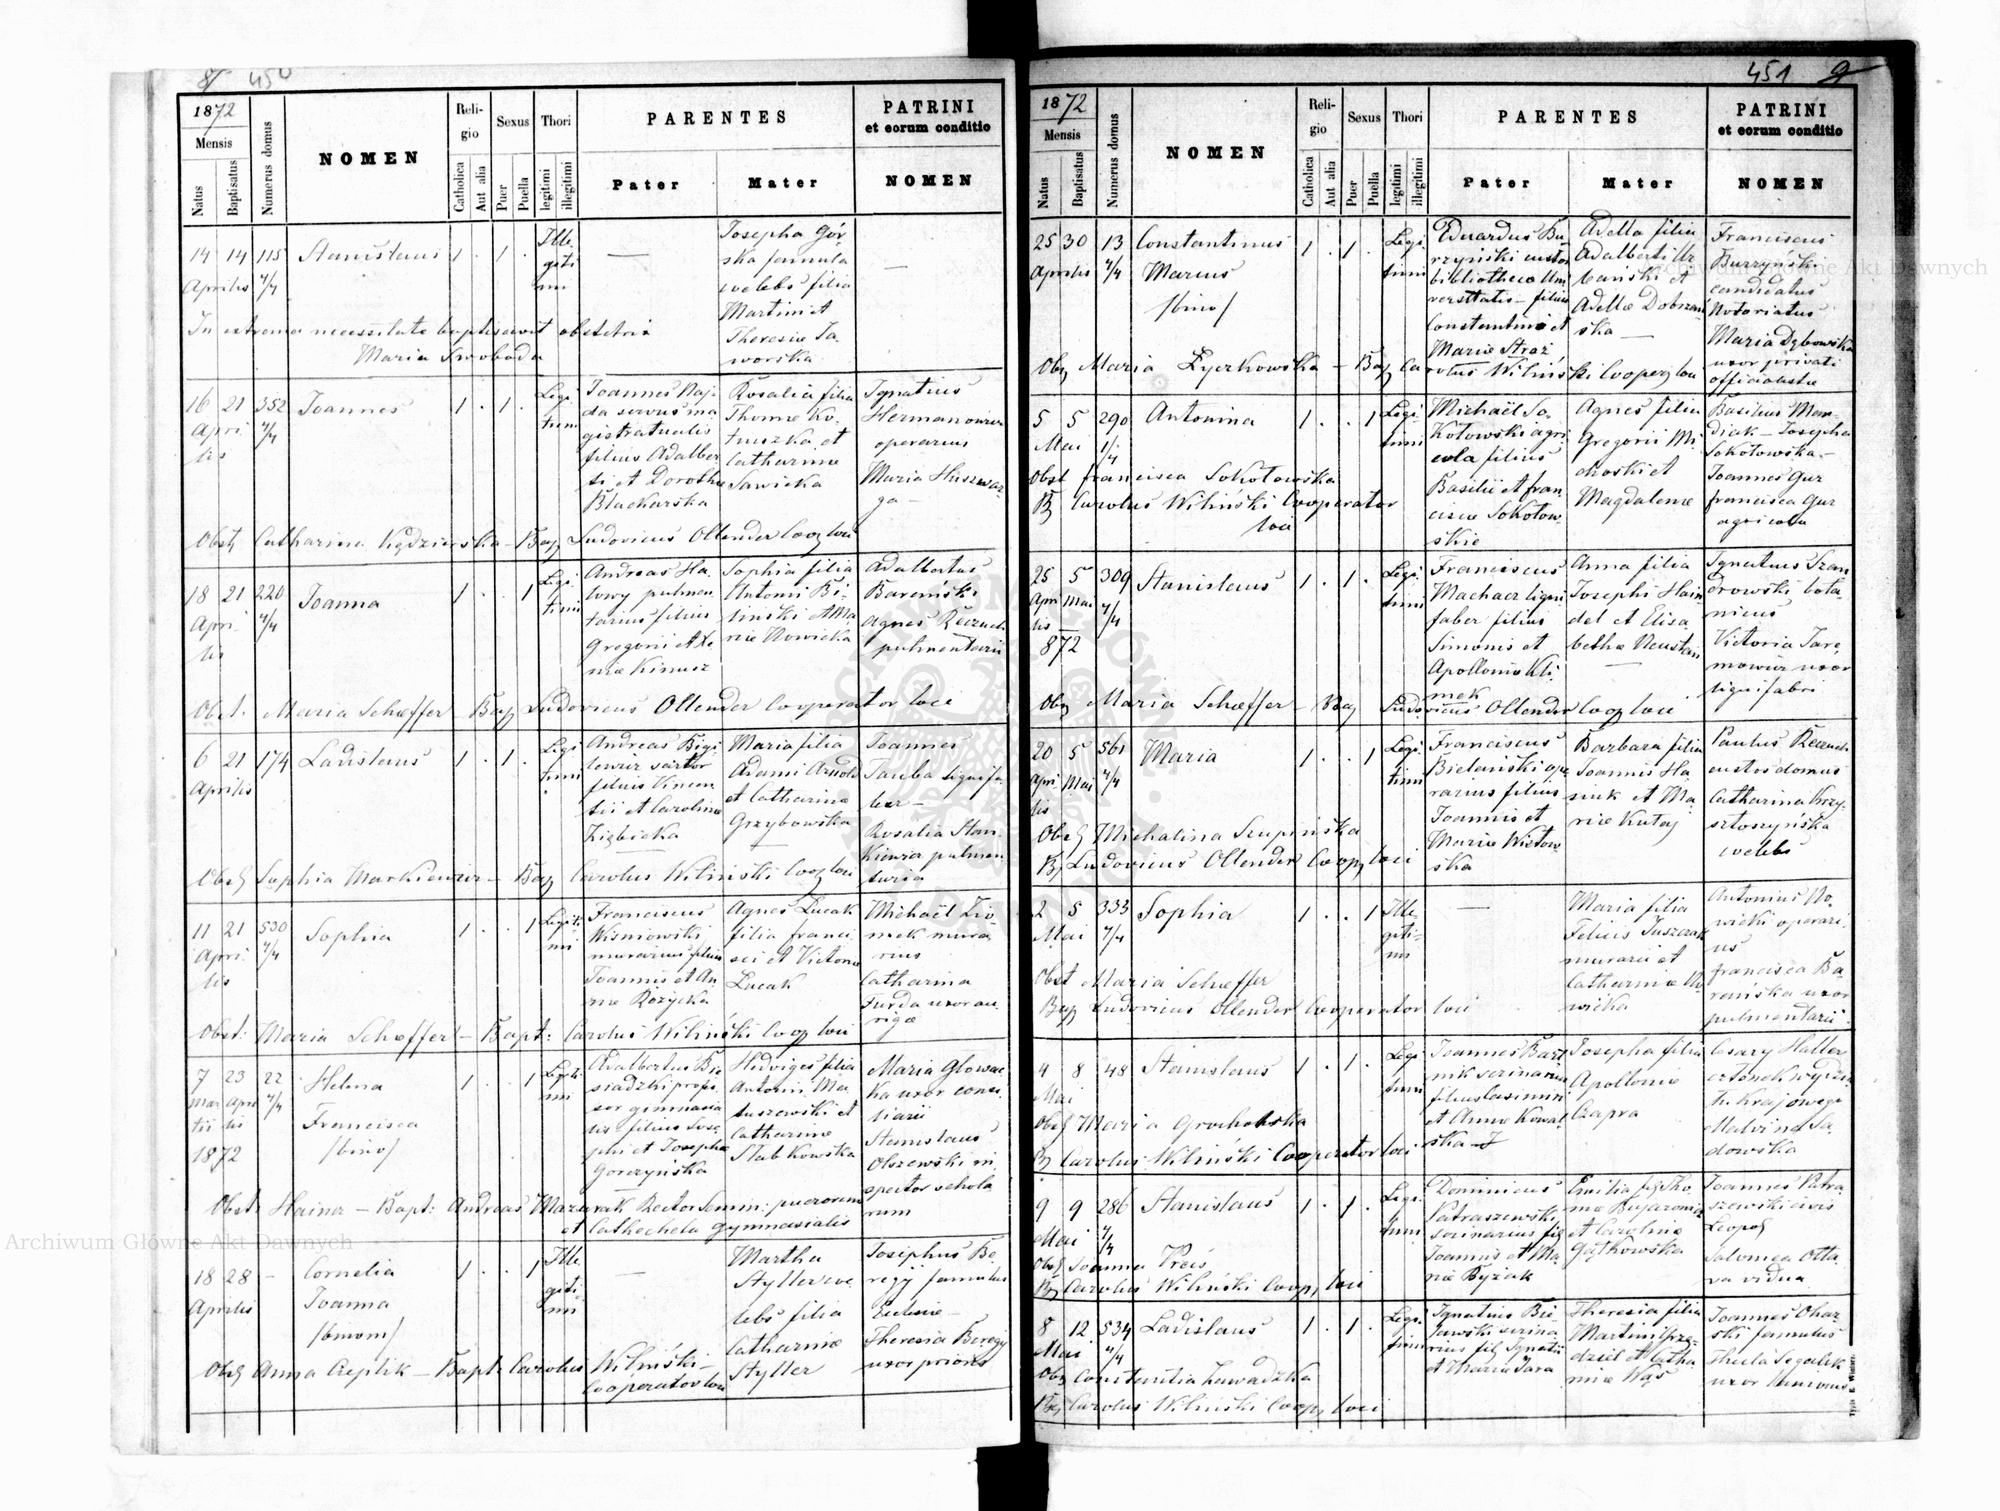 8 450
1872
Mensis
Natus
Baptisatus
Numerus domus
NOMEN
Religio
Catholica
Aut alia
Sexus
Puer
Puella
Thori
legitimi
illegitimi
PARENTES
Pater
Mater
PATRINI
et eorum conditio
NOMEN
14 14 115 Stanislaus 1 . 1 .
Aprilis 4/4
Ille
giti
mi
—
Josepha Gór-
ska famula
coelebs filia
Martini et
Theresiæ Ja-
worska
—
In extrema necessitate baptisavit obstetrix
Maria Swoboda
16 21 352 Joannes 1 . 1 .
Apri
lis
4/4
Legi
timi
Joannes Naj-
da servus ma
gistratualis
filius Adalber
ti et Dorothea
Blacharska
Rosalia filia
Thomæ Ko-
tuszka et
Catharina
Sawicka
Ignatius
Hermanowicz
operarius
Maria
Obst Catharina Kędzierska – Bap Ludovicus Ollender Coop loci
18 21 220 Joanna 1 . . 1
Apri-
lis
4/4
Legi
timi
Andreas Ha-
lowy pulmen
tarius filius
Gregorii et Xe
niæ Kinusz
Sophia filia
Antonii Bi-
linski et Ma
riæ Nowicka
Adalbertus
Bareński
Agnes Ręczuch
pulmentarii
Obst. Maria Schæffer – Bap Ludovicus Ollender Cooperator loci
6 21 174 Ladislaus 1 . 1 .
Aprilis
Legi
timi
Andreas Bigi
lewicz sartor
filius Vincen
tii et Carolinæ
Ziębicka
Maria filia
Adami Arnold
et Catharinæ
Grzybowska
Joannes
Tauba lignifa
ber –
Rosalia Stan
kiewicz pulmen
taria
Obst Sophia Markiewicz – Bap Carolus Wiliński Coop loci
11 21 530 Sophia 1 . . 1
Apri
lis
4/4
Legiti
mi
Franciscus
Wisniowski
murarius filius
Joannis et An
næ Rozycka
Agnes Lucak
filia Franci
sci et Victoria
Lucak
Michaël Zio
mek mura
rius
Catharina
Furda uxor au
rigæ
Obst: Maria Schæffer – Bapt: Carolus Wiliński Coop loci
7 23 22 Helena 1 . . 1
Mar
tii
Apri
lis
4/4
1872
Francisca
/bino/
Legiti
mi
Adalbertus Bie
siadzki profe
sor gimnasia
lis filius Jose
phi et Josepha
Gorczyńska
Hedviges filia
Antonii Ma-
tuszewski et
Catharinæ
Słabkowska
Maria Głowac
ka uxor consi
liarii
Stanislaus
Olszewski in
spector schola
rum
Obst: Hainer – Bapt: Andreas Mazurak Rector Semin: puerorum
et Cathecheta gymnasialis
18 28 – Cornelia 1 . . 1
Aprilis
Joanna
/binom/
Ille
giti
mi
—
Martha
Styller coe
lebs filia
Catharinæ
Styller
Josephus Be
regij famulus
Ecclesiæ –
Theresia Beregij
uxor prioris
Obst Anna Czeplik – Bapt: Carolus Wiliński –
Cooperator loci
451 9
1872
Mensis
Natus
Baptisatus
Numerus domus
NOMEN
Religio
Catholica
Aut alia
Sexus
Puer
Puella
Thori
legitimi
illegitimi
PARENTES
Pater
Mater
PATRINI
et eorum conditio
NOMEN
25 30 13 Constantinus 1 . 1 .
Aprilis 4/4
Marius
/bino/
Legi
timi
Eduardus Bu
rzyński custos
bibliothecæ Uni
versitatis – filius
Constantini et
Mariæ Straż
Adella filia
Adalberti Ur
bański et
Adellæ Dobrzań
ska —
Franciscus
Burzyński
candidatus
Notoriatus
Maria Dębowska
uxor privati
officialistæ
Obst Maria Łyczkowska – Bap Carolus Wiliński Cooper loci
5 5 290 Antonina 1 . . 1
Mai 1/4
Legi
timi
Michaël So-
kołowski agri
cola filius
Basilii et Fran
ciscæ Sokołow-
skie
Agnes filia
Gregorii Mi-
et
Magdalenæ
Basilius Mon-
diak – Josepha
Sokołowska –
Joannes Gur
Francisca Gur
agricola
Obst Francisca Sokołowska
B Carolus Wiliński Cooperator
loci
25 5 309 Stanislaus 1 . 1 .
Apri
lis
Mai
4/4
872
Legi
timi
Franciscus
Machacz ligni
faber filius
Simonis et
Apolloniæ Kli-
mek
Anna filia
Josephi Hain
del et Elisa
bethæ Neustan
—
Ignatius Szan
drowski bota-
nicus
Victoria Jare
mowicz uxor
lignifabri
Obst Maria Schæffer – Bap Ludovicus Ollender Coop loci
20 5 561 Maria 1 . . 1
Apri
lis
Mai
4/4
Legi
timi
Franciscus
Bielański ope
rarius filius
Joannis et
Mariæ Wistow-
ska
Barbara filia
Joannis Ha
siuk et Ma
riæ Kutaj
Paulus Ręczuch
custos domus
Catharina Krzy-
sztoszyńska
coelebs
Obst Michalina Szupińska
B Ludovicus Ollender Coop loci
2 5 333 Sophia 1 . . 1
Mai 4/4
Ille-
giti-
mi
—
Maria filia
Felicis Juszczak
murarii et
Catharinæ No
wicka
Antonius No-
wicki operari-
us
Francisca Ba
reńska uxor
pulmentarii
Obst Maria Schæffer
Bap Ludovicus Ollender Cooperator loci
4 8 48 Stanislaus 1 . 1 .
Mai
Legi
timi
Joannes Bart
nik scrinarius
filius Casimiri
et Annæ Kowal
ska
Josepha filia
Apolloniæ
Czapra
Cesary Haller
członek wydzia
łu krajowego
Malvina Sa
dowska
Obst Maria Grocholska
B Carolus Wiliński Cooperator loci
9 9 286 Stanislaus 1 . 1 .
Mai 4/4
Legi
timi
Dominicus
Patraszewski
scrinarius fil
Joannis et Ma
riæ Byzak
Emilia fil Tho
mæ Bujarowicz
et Carolinæ
Gątkowska
Joannes Patra
szewski civis
Leopol
Salomea Otta
va vidua
Obst Joanna Preis
B Carolus Wiliński Coop loci
8 12 534 Ladislaus 1 . 1 .
Mai 4/4
Legi
timi
Ignatius Bie
ławski scrina
rius fil Ignatii
et Maria Jara
Theresia filia
Martini Grzę
dziel et Catha
rinæ Wąs
Joannes Ohar
ski famulus
Thecla Segalik
uxor
Obst Constantia Zawadzka
B Carolus Wiliński Coop loci
Typis E. Winiarz.
Archiwum Główne Akt Dawnych
Archiwum Główne Akt Dawnych
ARCHIWUM GŁÓWNE AKT DAWNYCH